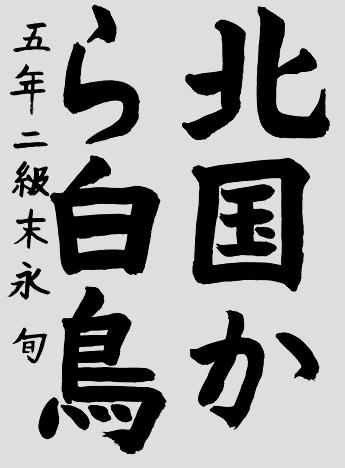 北国か
ら白鳥
五年二級末永旬